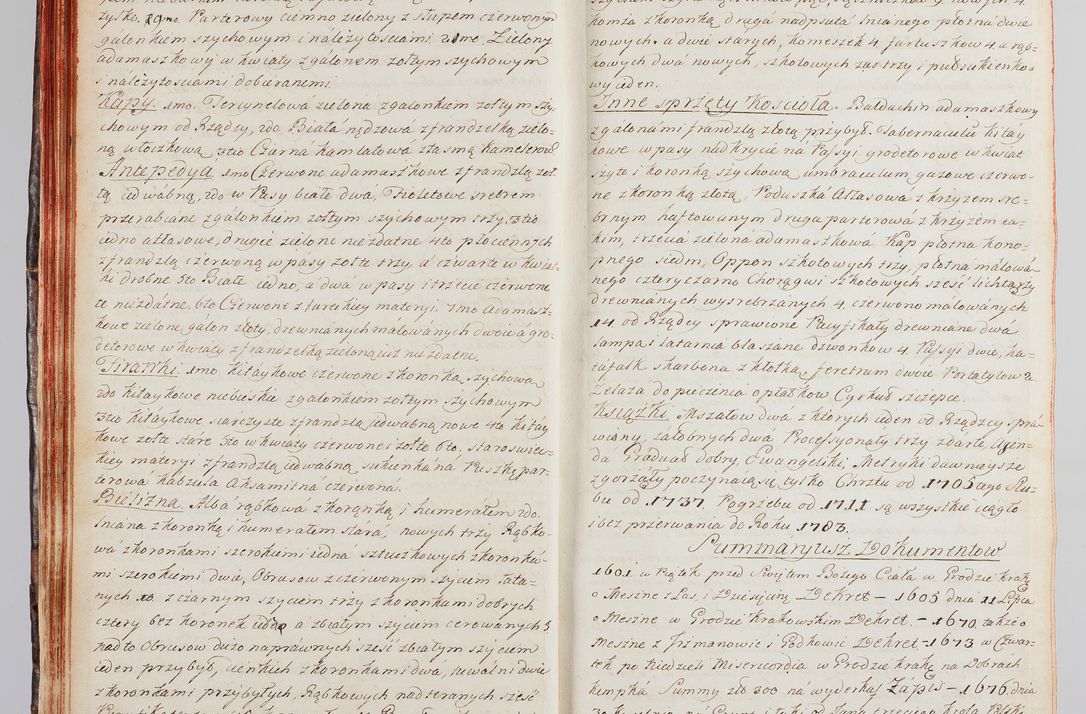 żysko. 19no. Parterowy ciemno zielony z słupem czerwonym
galonkiem szychowym i należytościami. 2‑1mo. Zielony
adamaszkowy w kwiaty z galonem żołtym szychowym
i należytościami dobieranemi.
Kapy. 1mo. Tercynelowa zielona z galonkiem żołtym szy-
chowym od Rządcy, 2do Biała nędzowa z frandzelką zielo-
ną włoczkową 3tio Czarna kamlatowa z tasmą kamelorową
Antepedya. 1mo Czerwone adamaszkowe z frandzlą żoł-
tą iedwabną, 2do w Pasy białe dwa, Fioletowe srebrem
przerabiane z galonkiem żołtym szychowym trzy, 3tio
iedno atłasowe, drugie zielone nieżdatne 4to płociennych
z frandzlą czerwoną w pasy żołte trzy, a czwarte w kwiat-
ki drobne 5to Białe iedno, a dwa w pasy i trzecie czerwone
te niezdatne. 6to Czerwone z tureckiey materyi. 7mo Adamasz-
kowe zielone, galon złoty, drewnianych malowanych dwoie a gro-
detorowe w kwiaty z frandzelką zieloną iuż niezdatne.
Firanki. 1mo kitaykowe czerwone z koronką szychową
2do kitaykowe niebieskie z galonkiem żołtym szychowym
3tio kitaykowe siarczyste z frandzlą iedwabną nowe 4to kitay
kowe żołte stare 5to w kwiaty czerwone i żołte 6to. staroswiec-
kiey materyi z frandzlą iedwabną sukienka na Puszkę par-
terowa kabzula Aksamitna czerwona.
Bielizna. Alba rąbkowa z korąnką i humerałem 2do.
lniana z koronką i humerałem stara, nowych trzy Rąbko-
wa z koronkami szerokiemi iedna sztuczkowych z koronka-
mi szerokiemi dwie, Obrusow z czerwonym szyciem tata-
nych 10 z czarnym szyciem trzy z koronkami dobrych
cztery bez koronek ieden a z białym szyciem cerowanych 5
nadto Obrusow dużo naprawnych sześć z białym szyciem
ieden przybył, cienkich z koronkami dwa,
z koronkami przybyłych, Rąbkowych nadteranych sześć
komża z koronką druga nadpsuta lnianego płotna dwie
nowych. a dwie starych, komeszek 4. fartuszkow 4. a rąb-
kowych dwa nowych, szkotowych zas trzy i pułsukienko-
wy ieden.
Inne sprzęty Kościoła. Baldachin adamaszkowy
z galonami frandzlą złotą przybył. Tabernaculu kitay
kowe w pasy nadkrycie na Passyi grodetorowe w kwiat
szyte i koronką szychową umbraculum gazowe czerwo-
ne z koronką złotą, Poduszka Atłasowa z krzyżem sre-
brnym haftowanym druga parterowa z krzyżem ta-
kim, trzecia zielona adamaszkowa. Kap płotna kono-
pnego siedm, Oppon szkotowych trzy, płotna malowa-
nego cztery czarno Chorągwi szkotowych sześć lichtarzy
drewnianych wysrebrzanych 4. czerwono malowanych
14 od Rządcy sprawione Pacyfikały drewniane dwa
lampa s latarnia blaszane dzwonkow 4. Passyi dwie, ka-
tafalk skarbona z kłotką feretrum dwoie Portatylow 2.
Żelaza do pieczenia opłatkow Cyrkuł szczypce.
Ksiązki. Mszałow dwa z ktorych ieden od Rządcy, spra-
wiony, żałobnych dwa Processyonały trzy zdarte Agen-
da Graduał dobry. Ewangeliki, Metryki dawnieysze
zgorzały poczynaią się tylko Chrztu od 1705tego Slu-
bu od 1737. Pogrzebu od 1711 są wszystkie ciągło
i bez przerwania do Roku 1783.
Summaryusz Dokumentow
1601. w Piątek przed Swiętem Bożego Ciała w Grodzie krako
o Meszne z Las. i Dziesięcinę Dekret – 1605 dnia 11 Lipca
o Meszne w Grodzie krakowskim Dekret. – 1670. także o
Meszne z Izimanowic i Podkowic Dekret – 1673 w Czwar-
tek po Niedzieli Misericordia w Grodzie krako. na Dobrach
kempka Summy złł 300 na wyderkaf Zapis – 1676. dnia